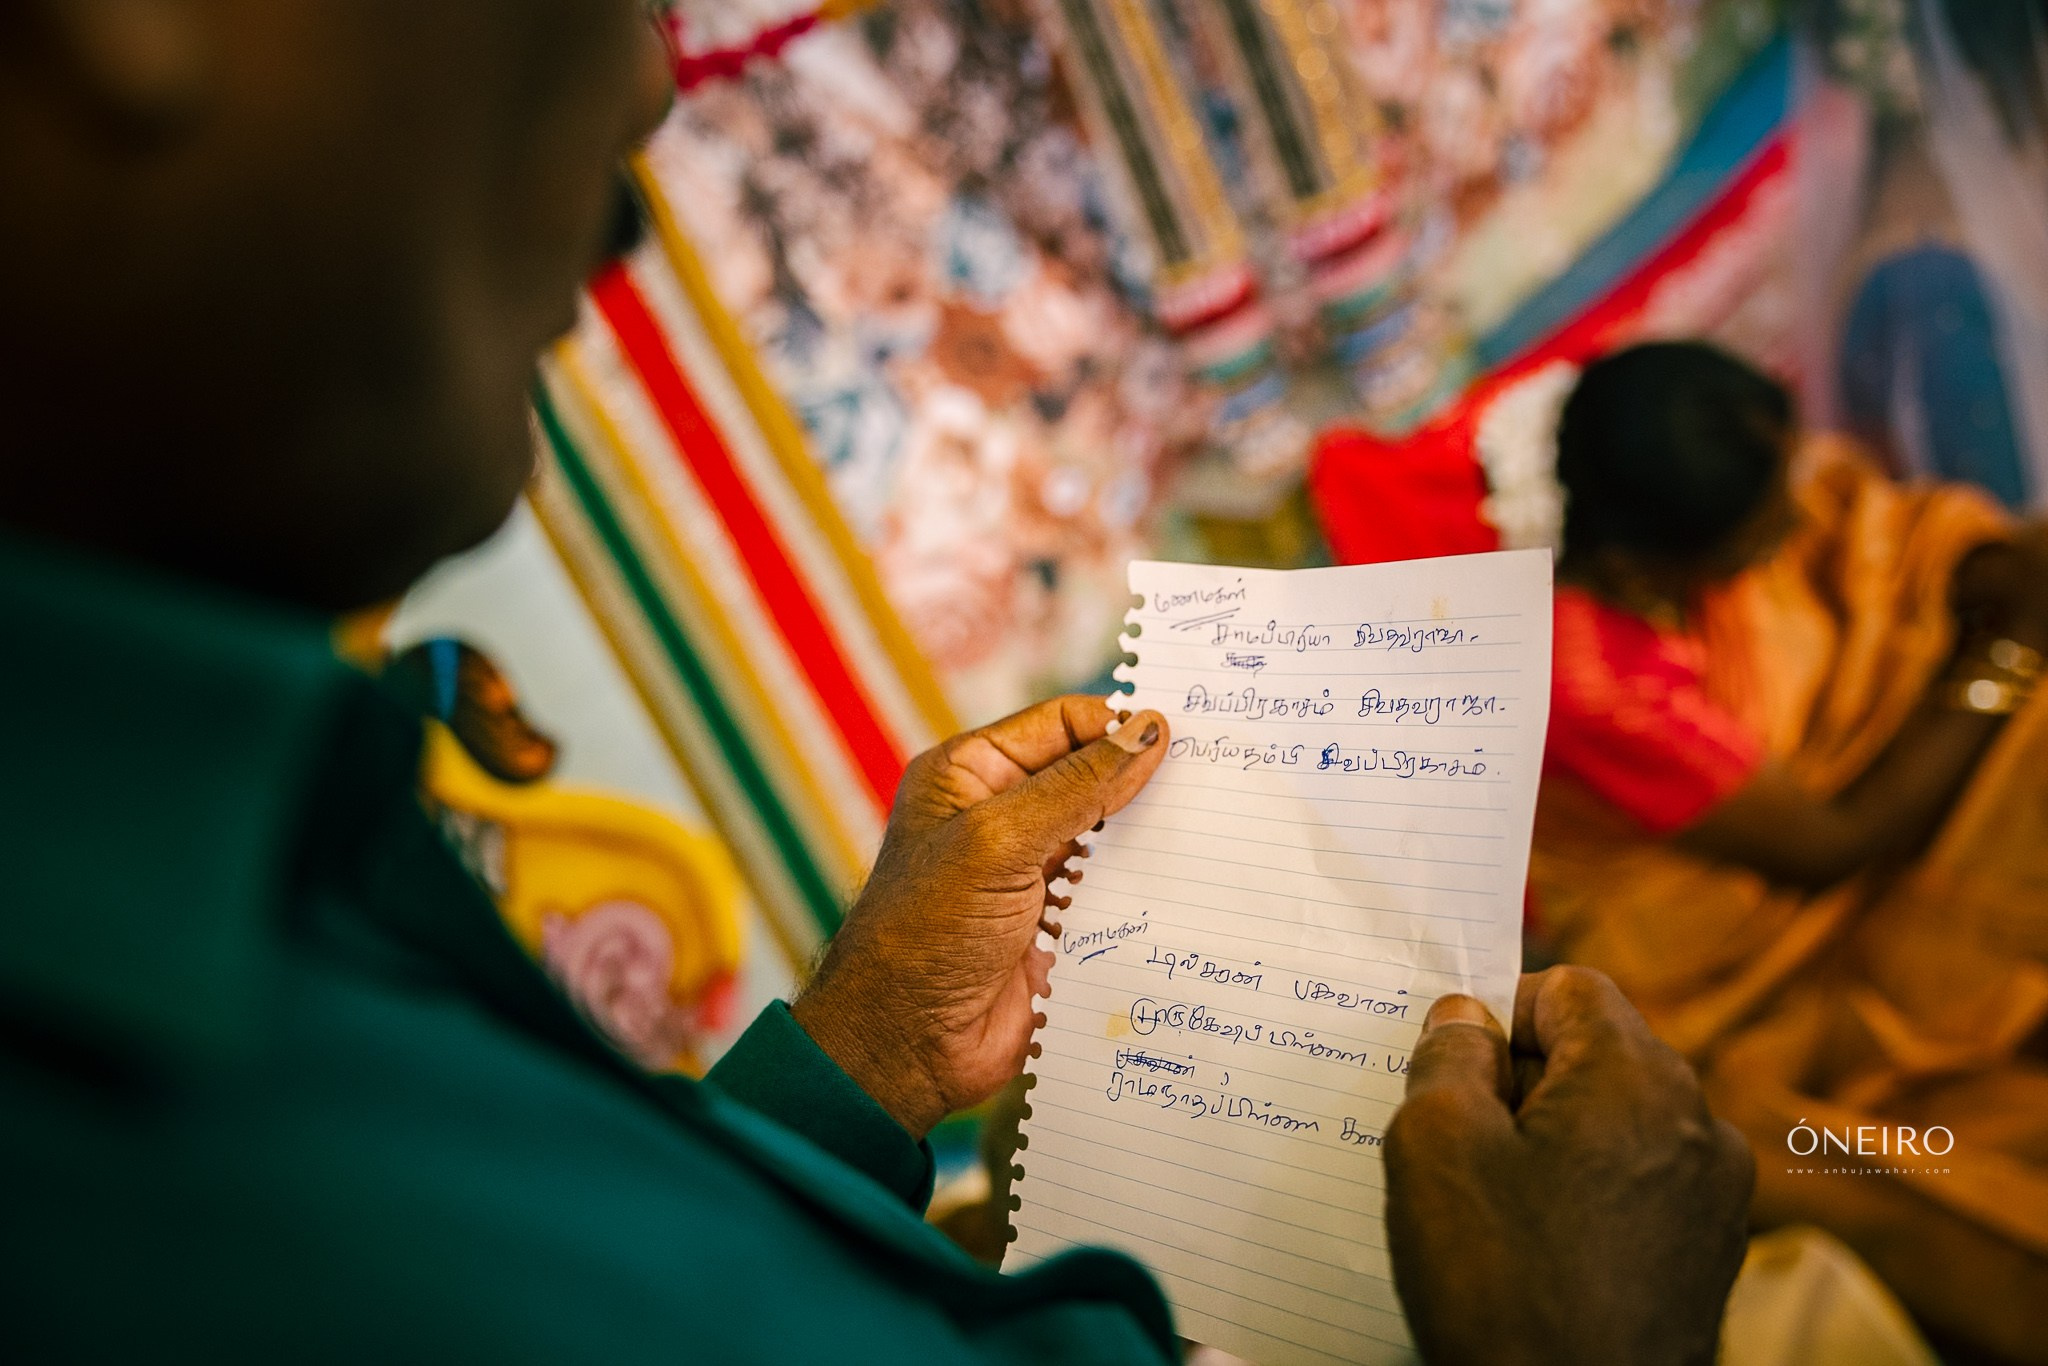 மணமகள்
சிவதவராஜா.
சிவப்பிரகாசம் சிவதவராஜா.
பெரியதம்பி சிவப்பிரகாசம்.
மணமகன்
டில்சரன் பகவான்
முருகேசுப்பிள்ளை. பக
இராமநாதப்பிள்ளை
ÓNEIRO
www.anbujawahar.com